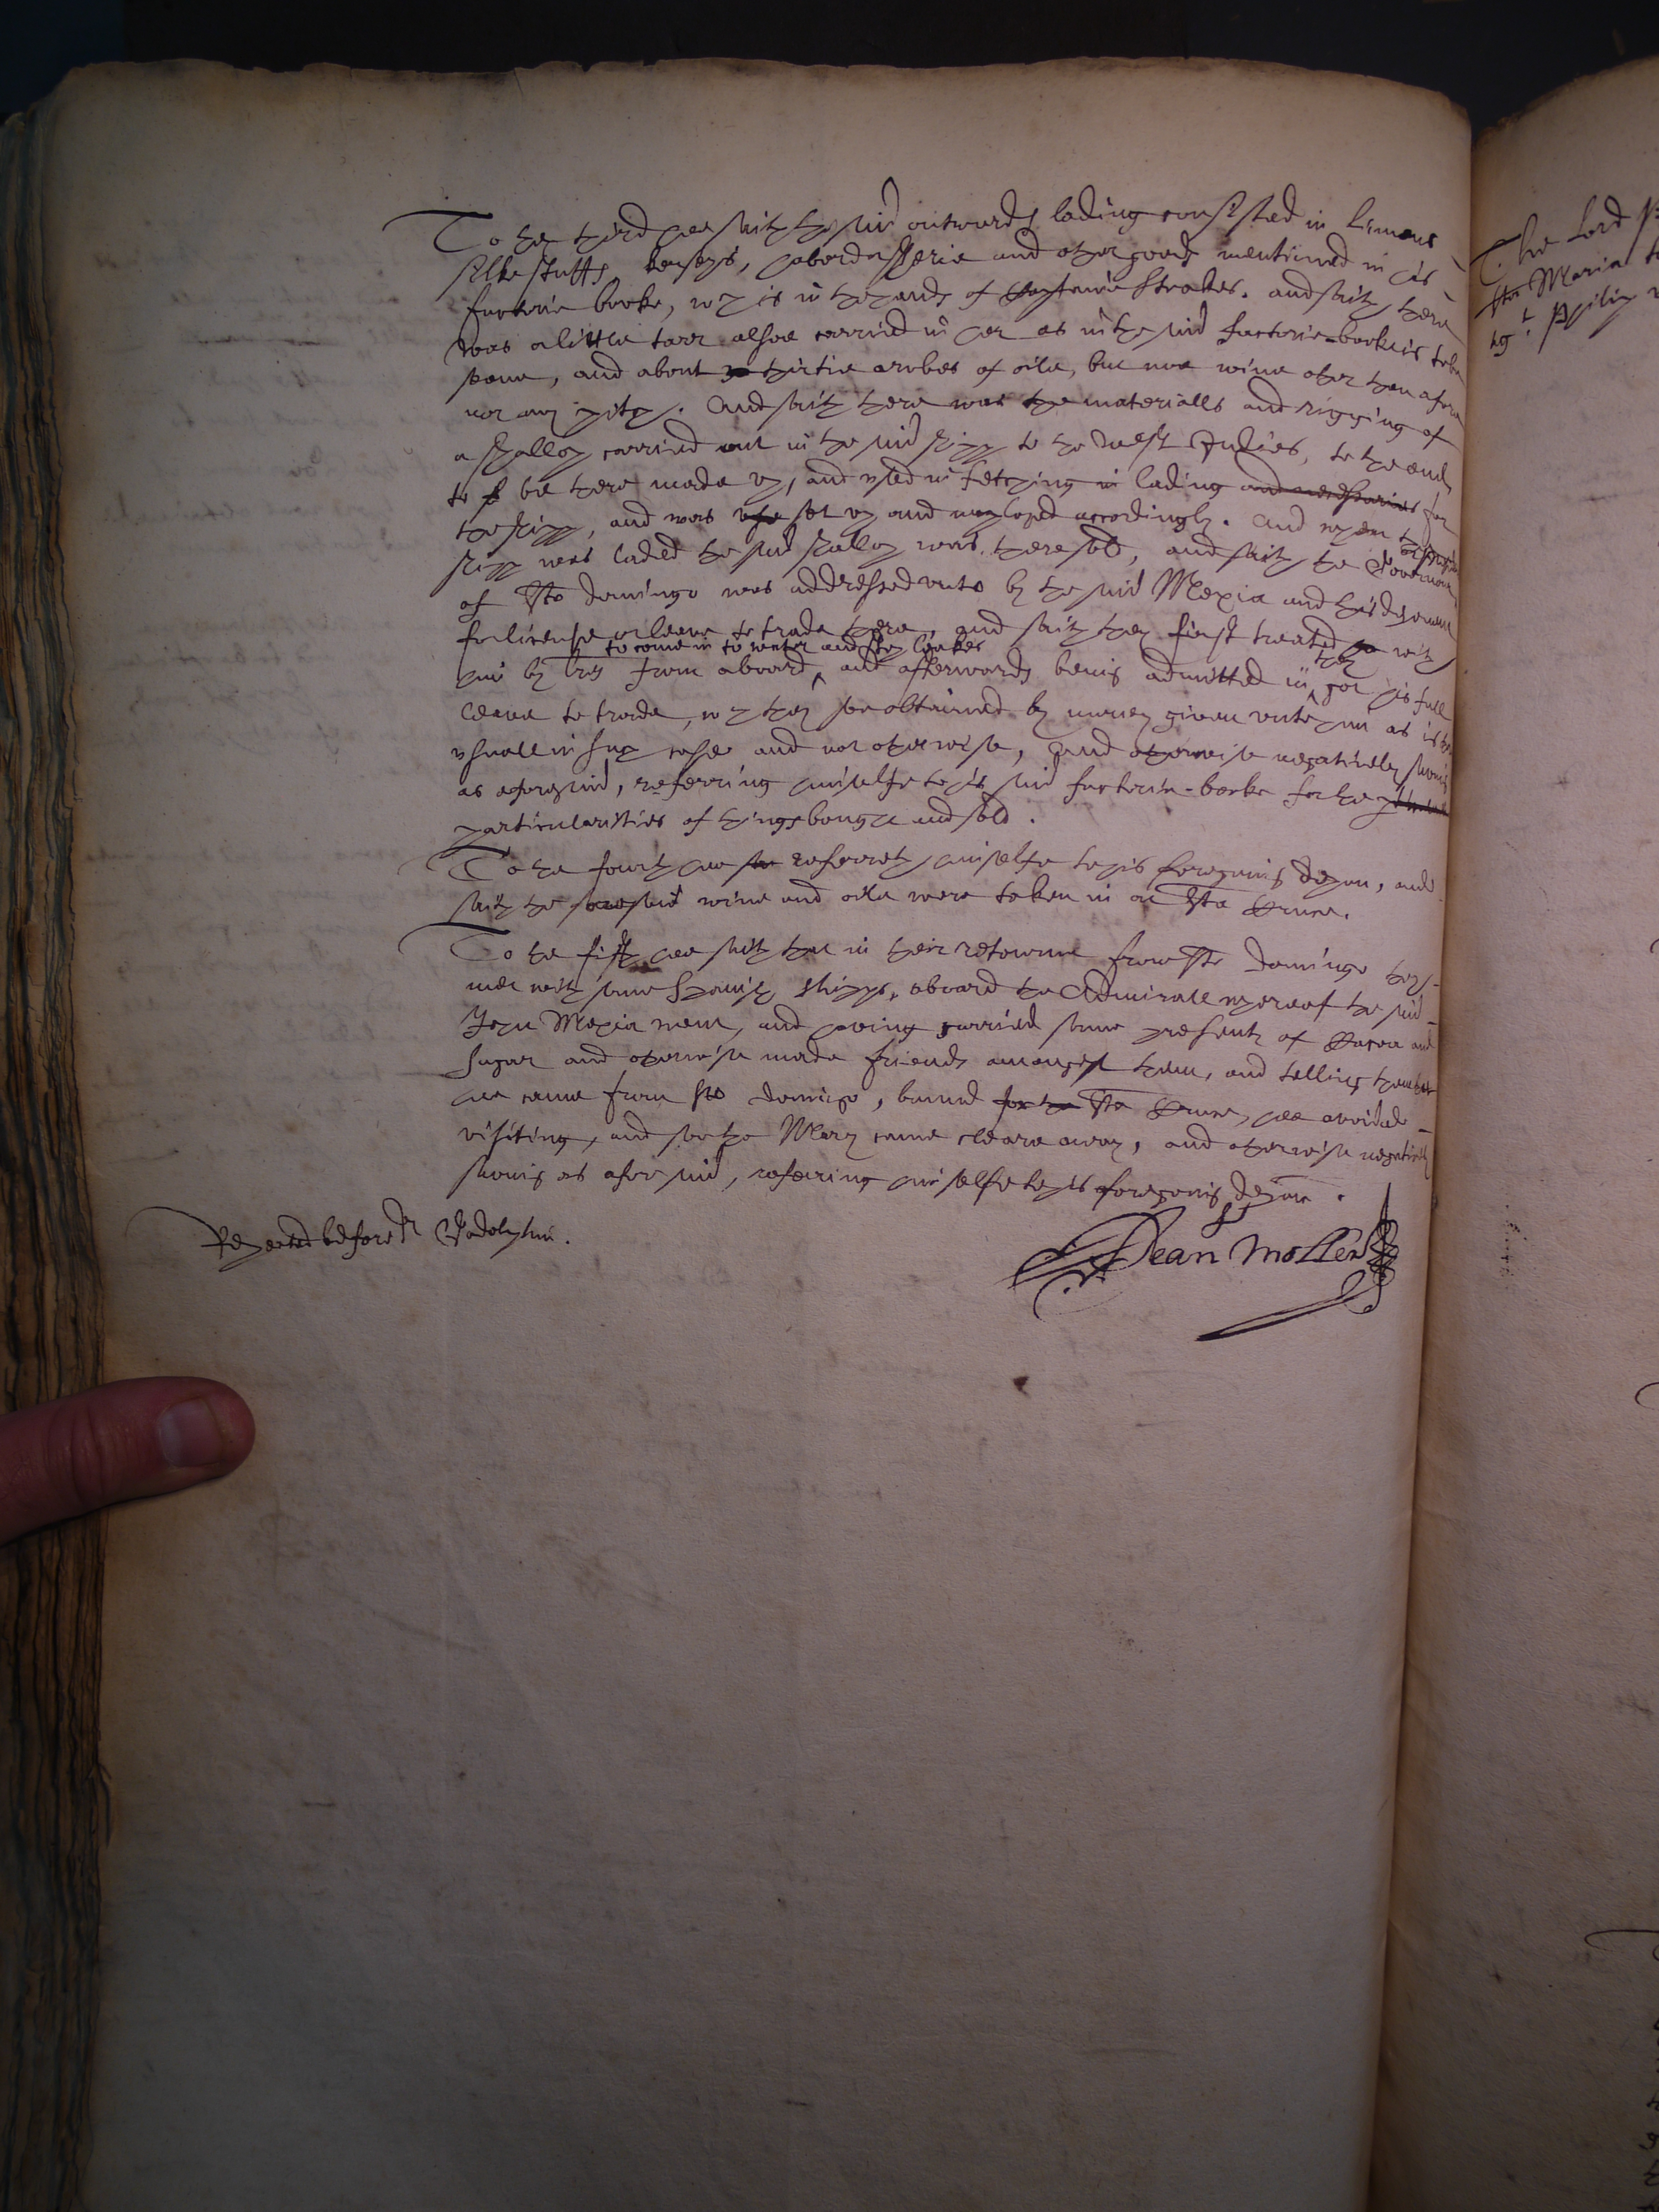 To the third hee saith the said outwards lading consisted in linnens
silke stuffs kerseys, haberdasherie and other goods mentioned in his
factorie booke, wch is in the hands of Captaine Strakes. and saith there
was a little tarr alsoe carried in her as in the said factorie-booke is to be
seene, and about thirtie arobes of oile, but noe wine other then afore
nor any pitch. And saith there was the materialls and rigging of
a shallop carried out in the said shipp to the West Indies, to the end
to be there made up, and used in fetching in lading and necessaries for
the shipp, and was set up and imployed accordingly. And when the said
shipp was laded the said shallop was there sold, and saith the Governour
of Sto Domingo was addressed unto by the said Mexia and this deponent
for license or leave to trade there, and saith they first treated with
to come in to water and stop leakes
him by lres from aboard, and afterwards being admitted in they got his full
leave to trade, wch they soe obtained by money given unto him as is
usuall in such cases and not otherwise, And otherwise negatively saving
as aforesaid, referring himselfe to his said factorie-booke for the
particularities of things bought and sold.
To the fourth hee referreth himselfe to his foregoing depon, and
saith the foresaid wine and oile were taken in at Sta Cruce.
To the fifth hee saith that in their retourne from Sto Domingo they
met with some Spanish shipps, aboard the Admirall whereof the said
John Mexia went, and having carried some presents of Cacoa and
sugar and otherwise made friends amongst them, and telling them that
hee came from Sto Domingo, bound for the Sta Cruce, hee avoided
visiting, and soe the Mary came cleare away, and otherwise negatively
saving as aforesaid, referring himselfe to his foregoing depon.
Repeated before Dr Godolphin.
Jean Mollet
The Lord P
Sta Maria
Philip